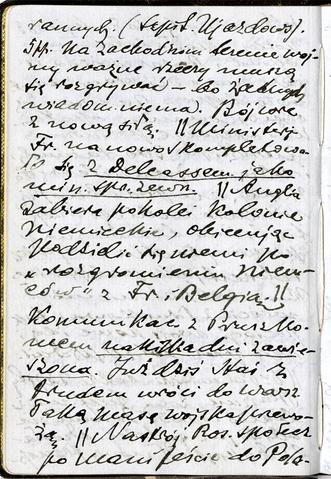 rannych. (szpit. Ujazdows).
Spp. Na zachodnim terenie woj-
ny ważne rzeczy muszą
się rozgrywać – bo żadnych
wiadom. niema. Bój wre
z nową siłą. || Ministerj.
Fr. na nowo skompletowa-
ło się z Delcassem jako
min. spr. zewn. || Anglia
zabiera po kolei kolonie
niemieckie, obiecując
podzielić się niemi po
rozgromieniu Niem-
ców z Fr. i Belgią. ||
Komunikac. z Pruszko-
wem na kilka dni zawie-
szona. Już dziś Staś z
trudem wróci do Warsz.
Taką masę wojska przewo-
żą. || Nastrój Ros. społecz.
po manifeście do Pola-